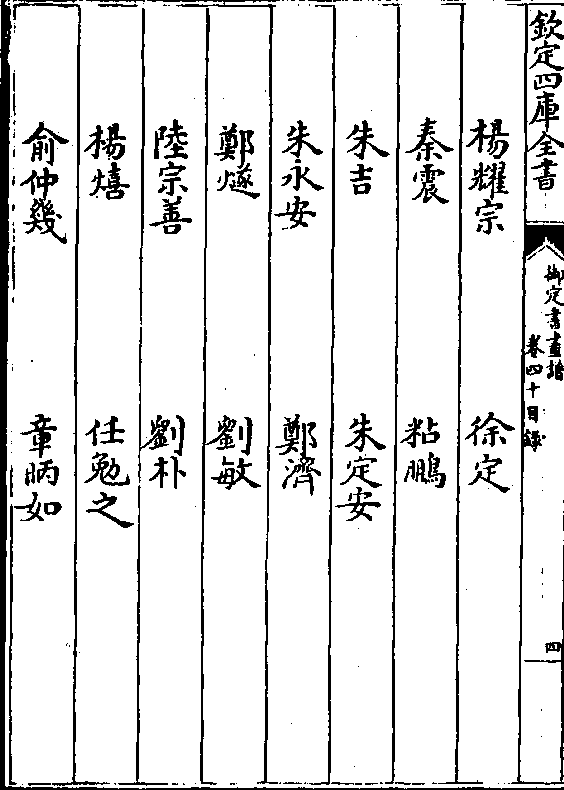 欽定四庫全書
御定書畫譜
卷四十目錄
四
楊耀宗 徐定
秦震 粘鵬
朱吉 朱定安
朱永安 鄭濟
鄭燧 劉敏
陸宗善 劉朴
楊熺 任勉之
俞仲幾 章昞如